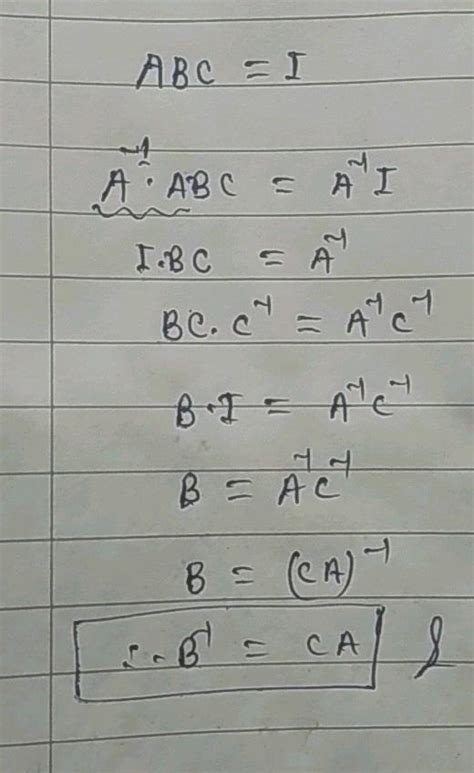 ABC = I
A⁻¹·ABC = A⁻¹I
I·BC = A⁻¹
BC·C⁻¹ = A⁻¹C⁻¹
B·I = A⁻¹C⁻¹
B = A⁻¹C⁻¹
B = (CA)⁻¹
B⁻¹ = CA